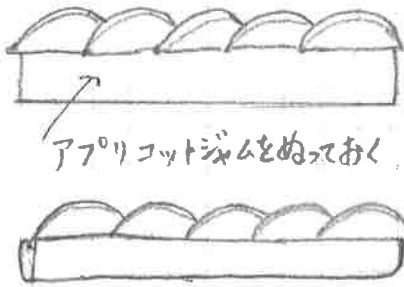 アプリコットジャムをぬっておく